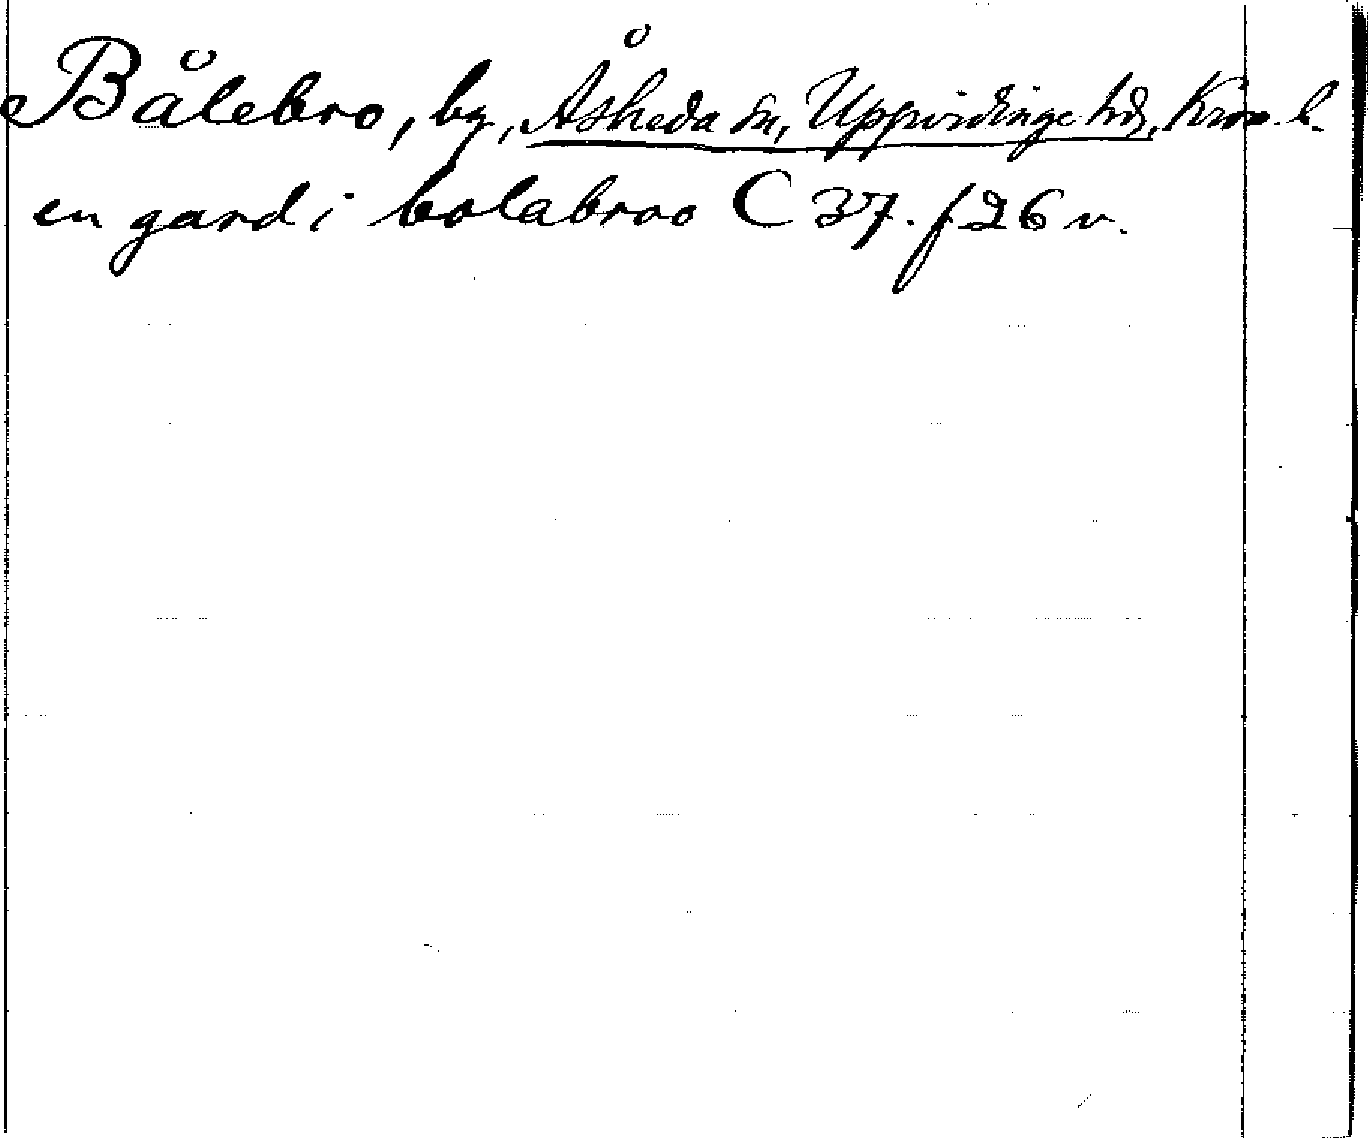 Bålebro, by, Åsheda sn, Uppvidinge hd, Kron. l.
en gard i bolabroo C 37. f 26 v.